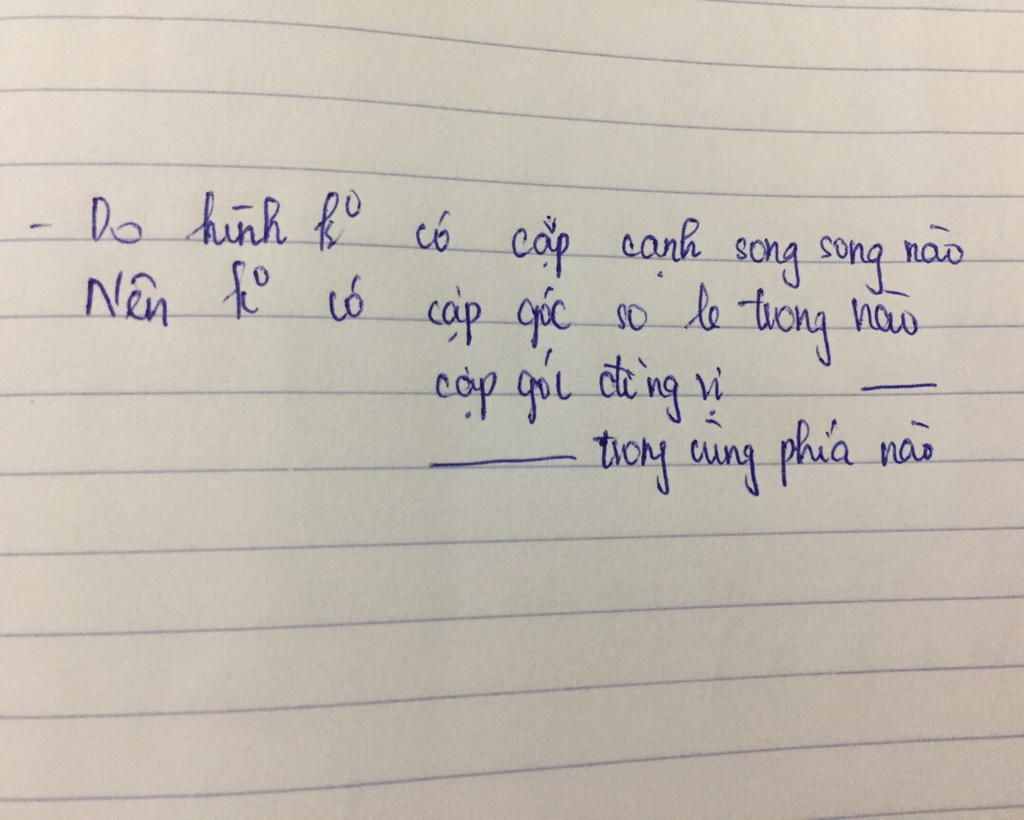 - Do hình k⁰ có cặp cạnh song song nào
Nên k⁰ có cặp góc so le trong nào
cặp góc đồng vị ——
——— trong cùng phía nào